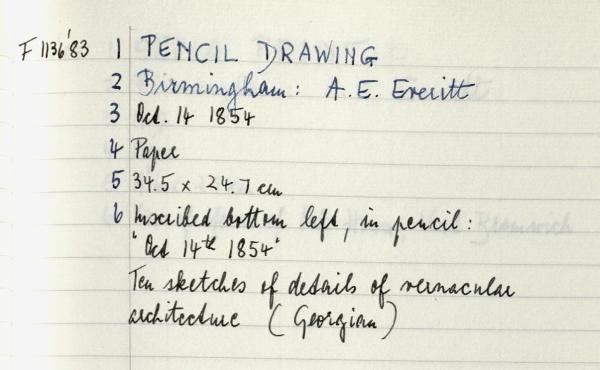 F1136'83 1 PENCIL DRAWING
2 Birmingham: A.E. Everitt
3 Oct. 14 1854
4 Paper
5 34.5 x 24.7 cm
6 Inscribed bottom left, in pencil:
"Oct 14th 1854"
Ten sketches of details of vernacular
architecture (Georgian)